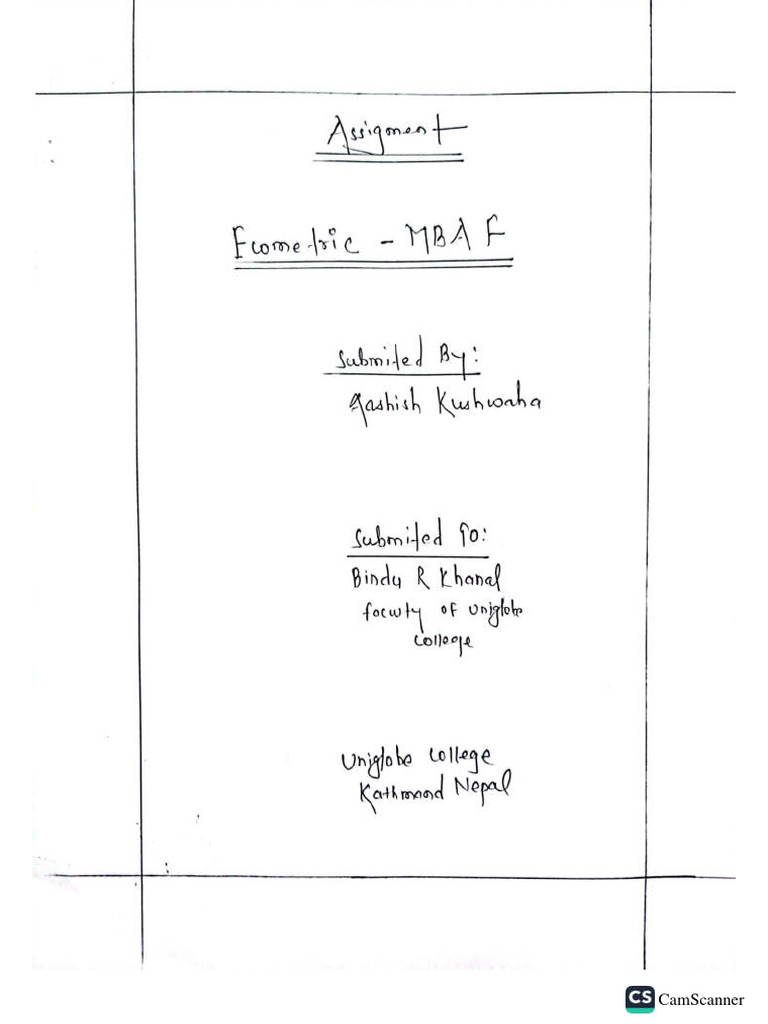 Assigment
Ecometric - MBA F
Submited By:
Aashish Kushwaha
Submited To:
Bindu R Khanal
faculty of Uniglobe
college
Uniglobe College
Kathmand Nepal
CS CamScanner